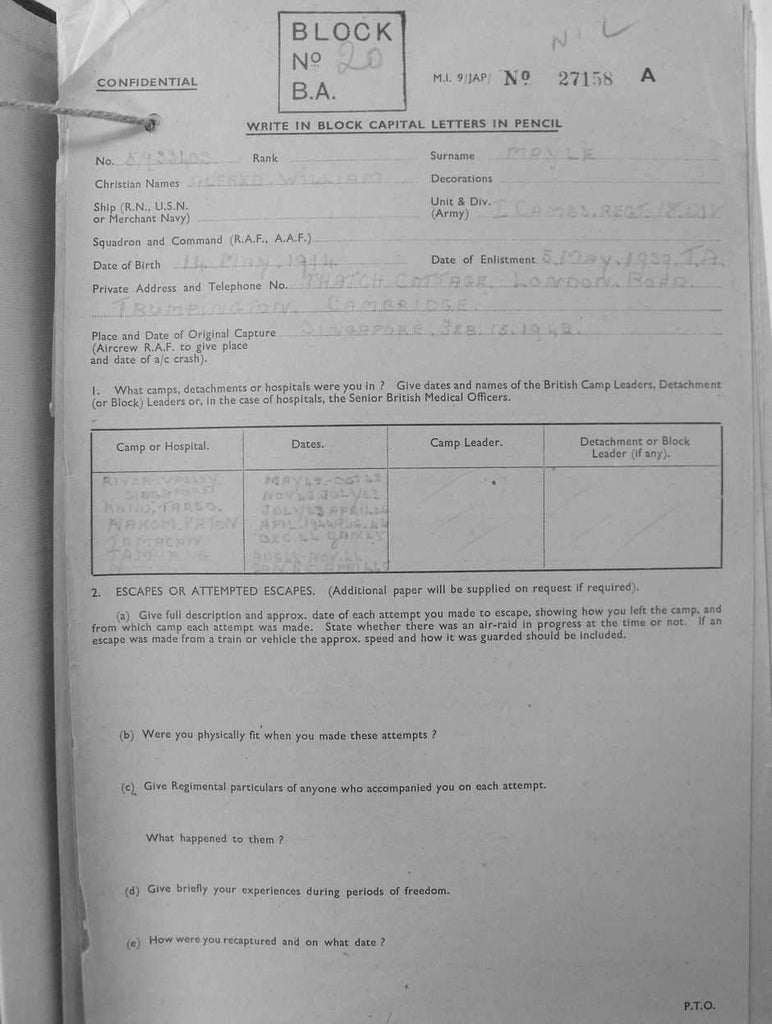 BLOCK
Nº 20
B.A.
NIL
CONFIDENTIAL
M.I. 9/JAP/ Nº 27158 A
WRITE IN BLOCK CAPITAL LETTERS IN PENCIL
No. Rank Surname MAYLE
Christian Names ALFRED. WILLIAM Decorations
Ship (R.N., U.S.N.
or Merchant Navy)
Unit & Div.
(Army) I CAMBS. REGT. 18. DIV
Squadron and Command (R.A.F., A.A.F.)
Date of Birth 14 MAY. 1914 Date of Enlistment 5. MAY. 1939. T.A.
Private Address and Telephone No. THATCH COTTAGE. LONDON. ROAD.
TRUMPINGTON. CAMBRIDGE.
Place and Date of Original Capture SINGAPORE. FEB. 15. 1942.
(Aircrew R.A.F. to give place
and date of a/c crash).
1. What camps, detachments or hospitals were you in ? Give dates and names of the British Camp Leaders, Detachment
(or Block) Leaders or, in the case of hospitals, the Senior British Medical Officers.
Camp or Hospital. Dates. Camp Leader. Detachment or Block
Leader (if any).
RIVER VALLEY. MAY 42 - OCT 42
SINGAPORE
NAKOM. PATON
TAMARKAN
2. ESCAPES OR ATTEMPTED ESCAPES. (Additional paper will be supplied on request if required).
(a) Give full description and approx. date of each attempt you made to escape, showing how you left the camp, and
from which camp each attempt was made. State whether there was an air-raid in progress at the time or not. If an
escape was made from a train or vehicle the approx. speed and how it was guarded should be included.
(b) Were you physically fit when you made these attempts ?
(c) Give Regimental particulars of anyone who accompanied you on each attempt.
What happened to them ?
(d) Give briefly your experiences during periods of freedom.
(e) How were you recaptured and on what date ?
P.T.O.